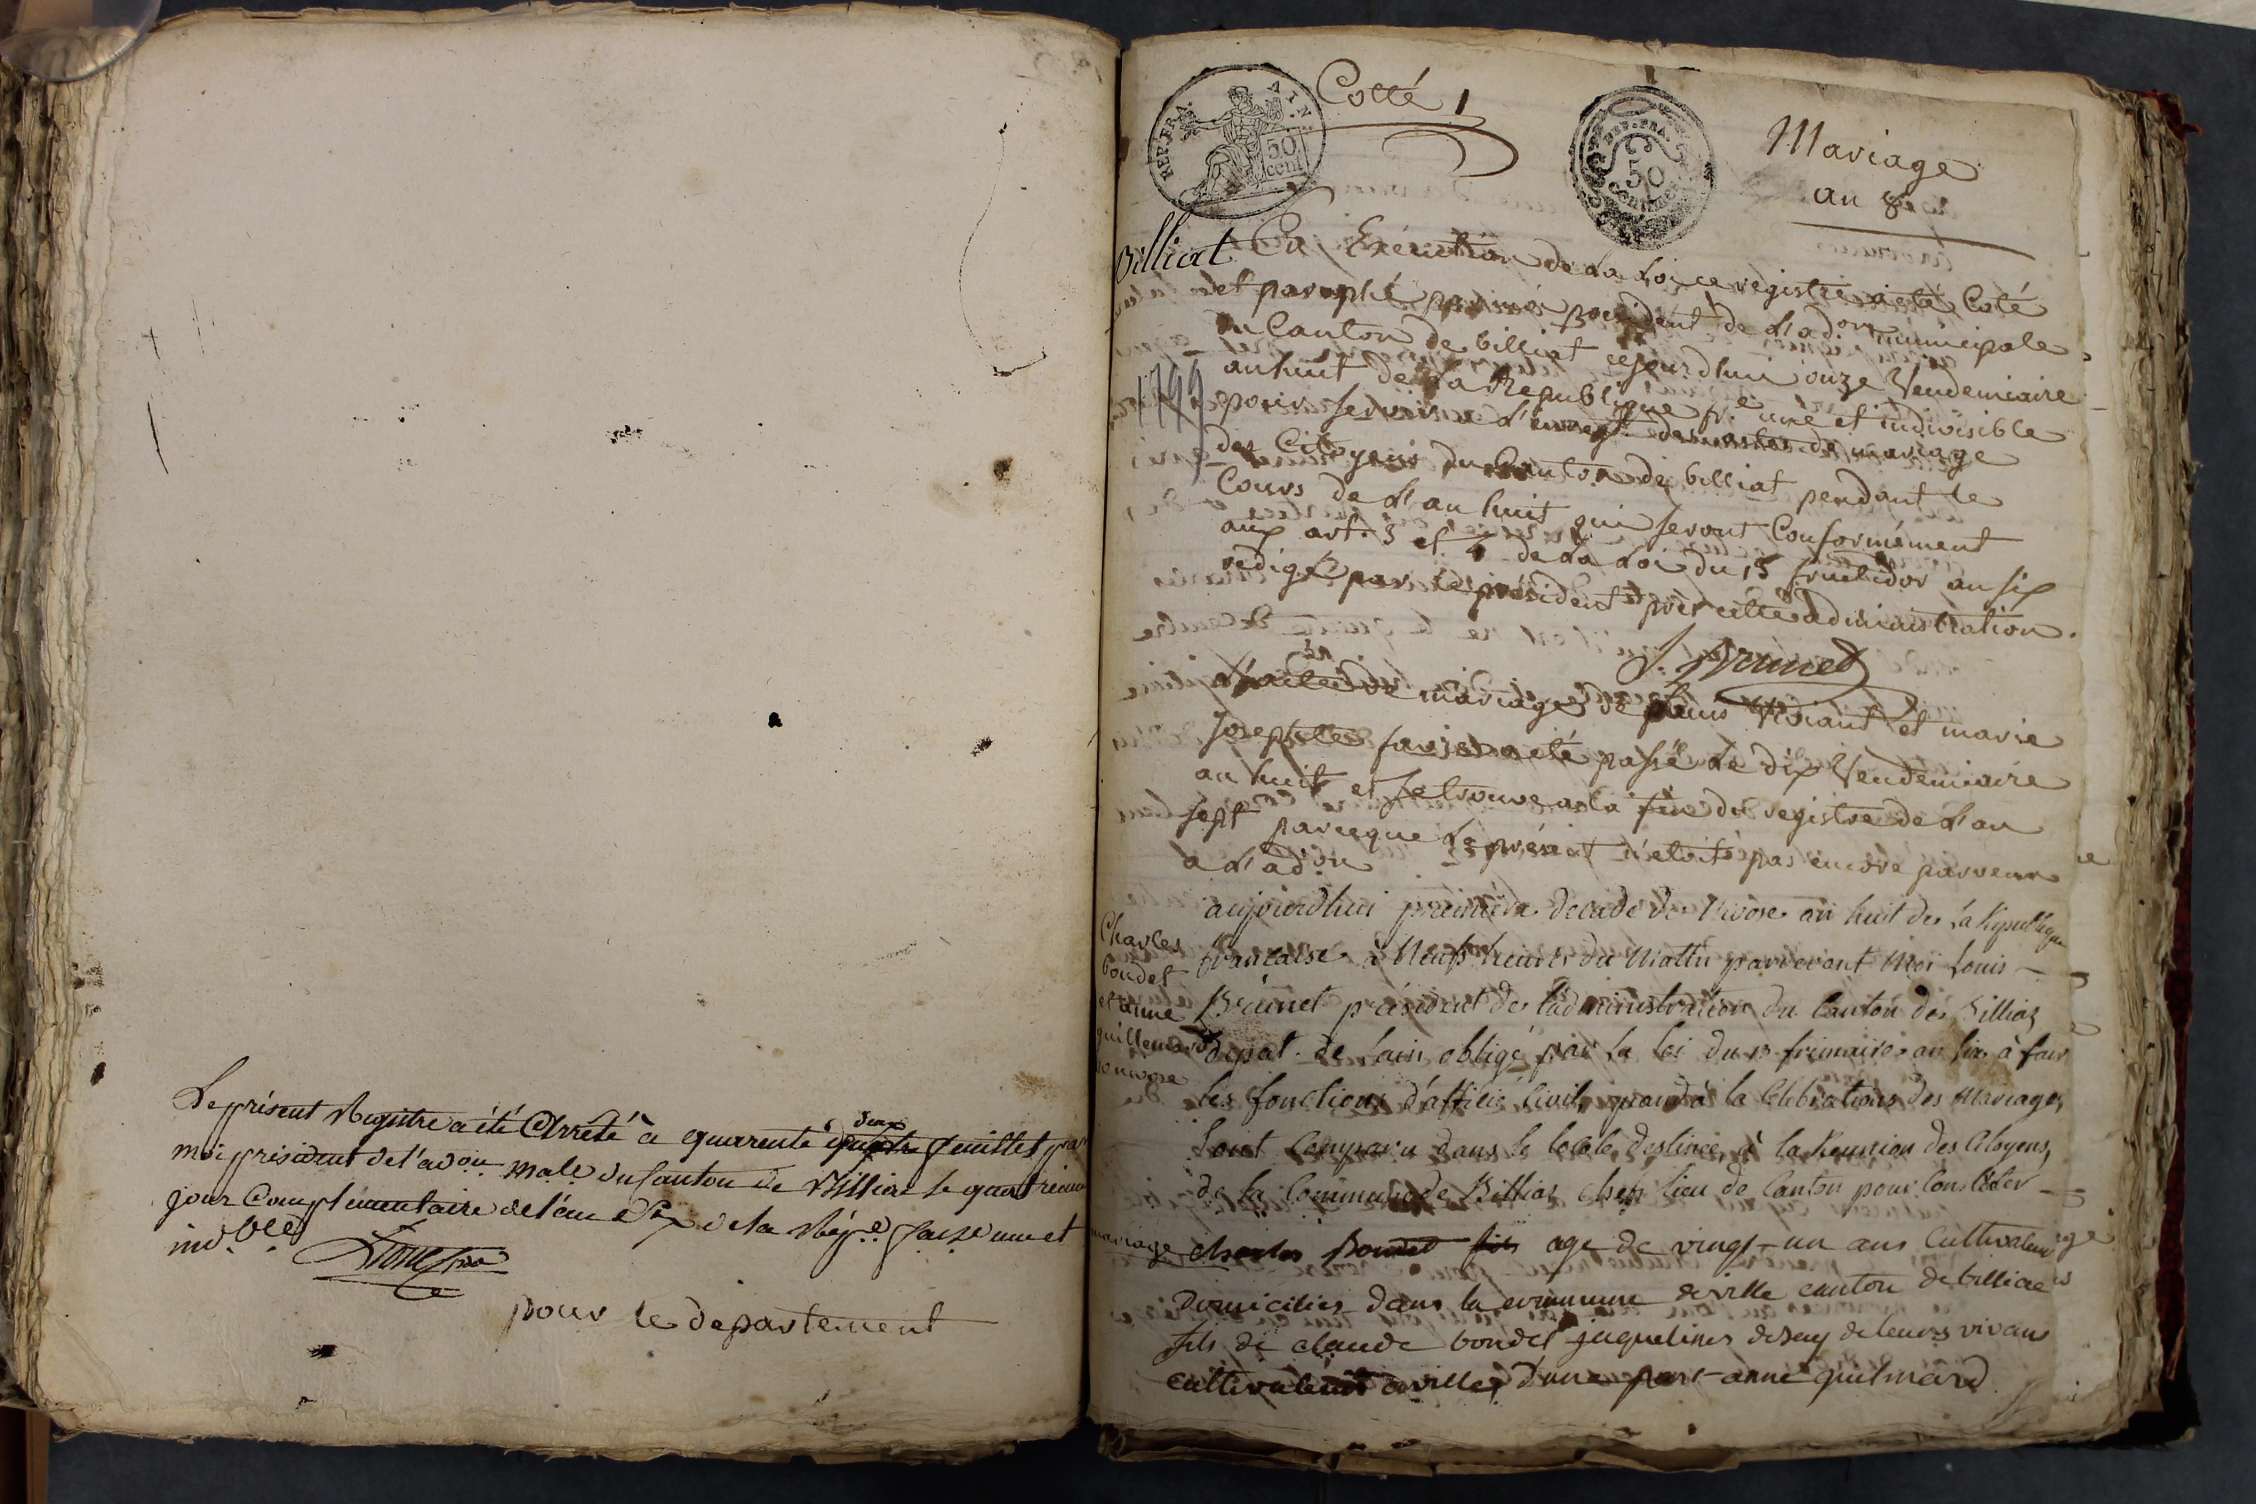 Le présent Registre a été Arrêté à quarente deux feuillet par
moi président de l'adon male du Canton de Billiat le quatrieme
jour Complementaire de l'an Six de la Rép.e franse une et
ind.ble
pour le departement
Cotté 1
REP. FRA. AIN.
50 cent
REP. FRA.
50
CENTIMES
Mariage
an 8
Billiat En Exécution de La Loi ce registre a eté Coté
et paraphé par moi president de L'adon municipale
du Canton de billiat cejourdhui onze Vendemiaire
an huit de La Republique fr.e une et indivisible
1799
pour servir a L'enregt des actes de mariage
des Citoyens du Canton de billiat pendant le
Cours de L'an huit qui seront Conformément
aux art. 3 et 4 de La Loi du 13 fructidor an six
redigés par le président et près cette administration.
L. Brunet
L'acte de mariage de et marie
Josephte a eté passé Le dix Vendemiaire
an huit et se trouve a la fin du registre de L'an
sept parceque Le présent n'etoit pas encore parvenu
a L'adon
aujourdhui premiere decade de Nivose an huit de La Republique
Charles
bondet
et anne
guillemard
francaise à Neuf heures du Matin pardevant Moi Louis
Brunet président de l'administration du Canton de Billiaz
depat. de Lain obligé par La loi du 13 an six à fair
les fonctions d'afficié Civil, quand à la Celebrations des Mariages,
Sont Comparu dans le locale destinée à la Reunion des Citoyens,
de la Commune de Billiaz chef lieu de Canton pour Contracter
mariage charles Bondet fils age de vingt-un ans Cultivateur
domiciliés dans la commune de ville canton de billiat
fils de claude bondet jaqueline de leurs vivans
cultivateurs a ville, d'une part anne guilmard